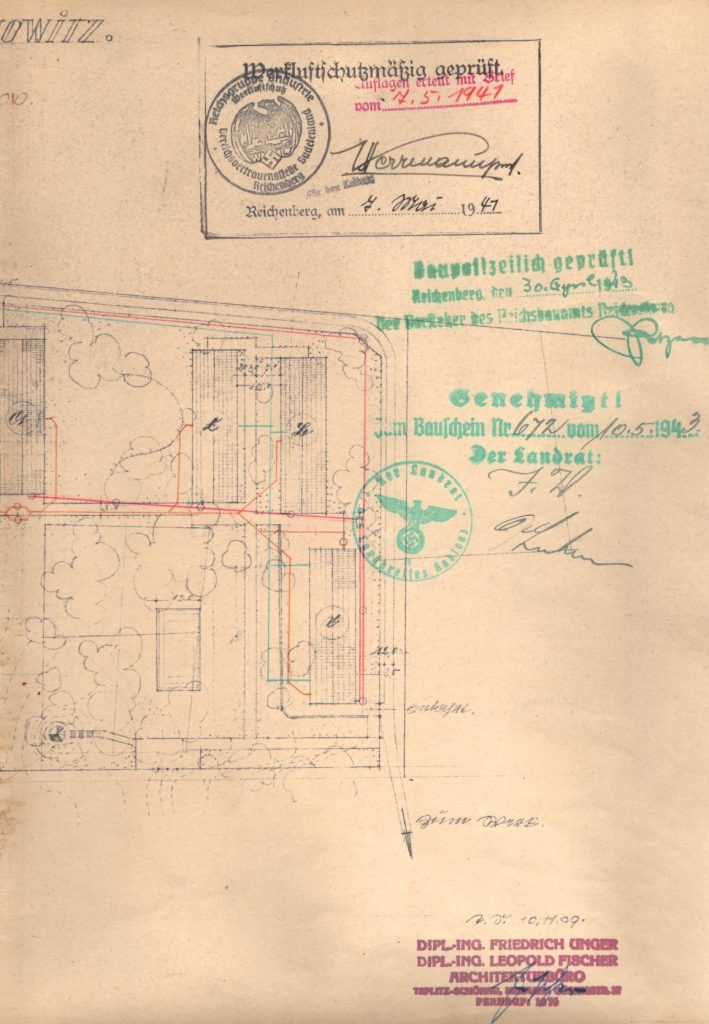 OWITZ.
Werkluftschutzmäßig geprüft
Auflagen erteilt mit Brief
vom 7.5.1941
Reichsgruppe Industrie
Werkluftschutz
Bereichsvertrauensstelle Sudetenland
Reichenberg
Reichenberg, am 7. Mai 1941
Baupolizeilich geprüft!
Reichenberg, den 30. April 1943
Der Vorsteher des Reichsbauamts
Genehmigt!
Zum Bauschein Nr 672 vom 10.5.1943.
Der Landrat:
J.V.
Der Landrat
Landkreises Gablonz
Einfahrt.
Zum Werk.
DIPL.-ING. FRIEDRICH UNGER
DIPL.-ING. LEOPOLD FISCHER
ARCHITEKTURBÜRO
TEPLITZ-SCHÖNAU,
FERNRUF: